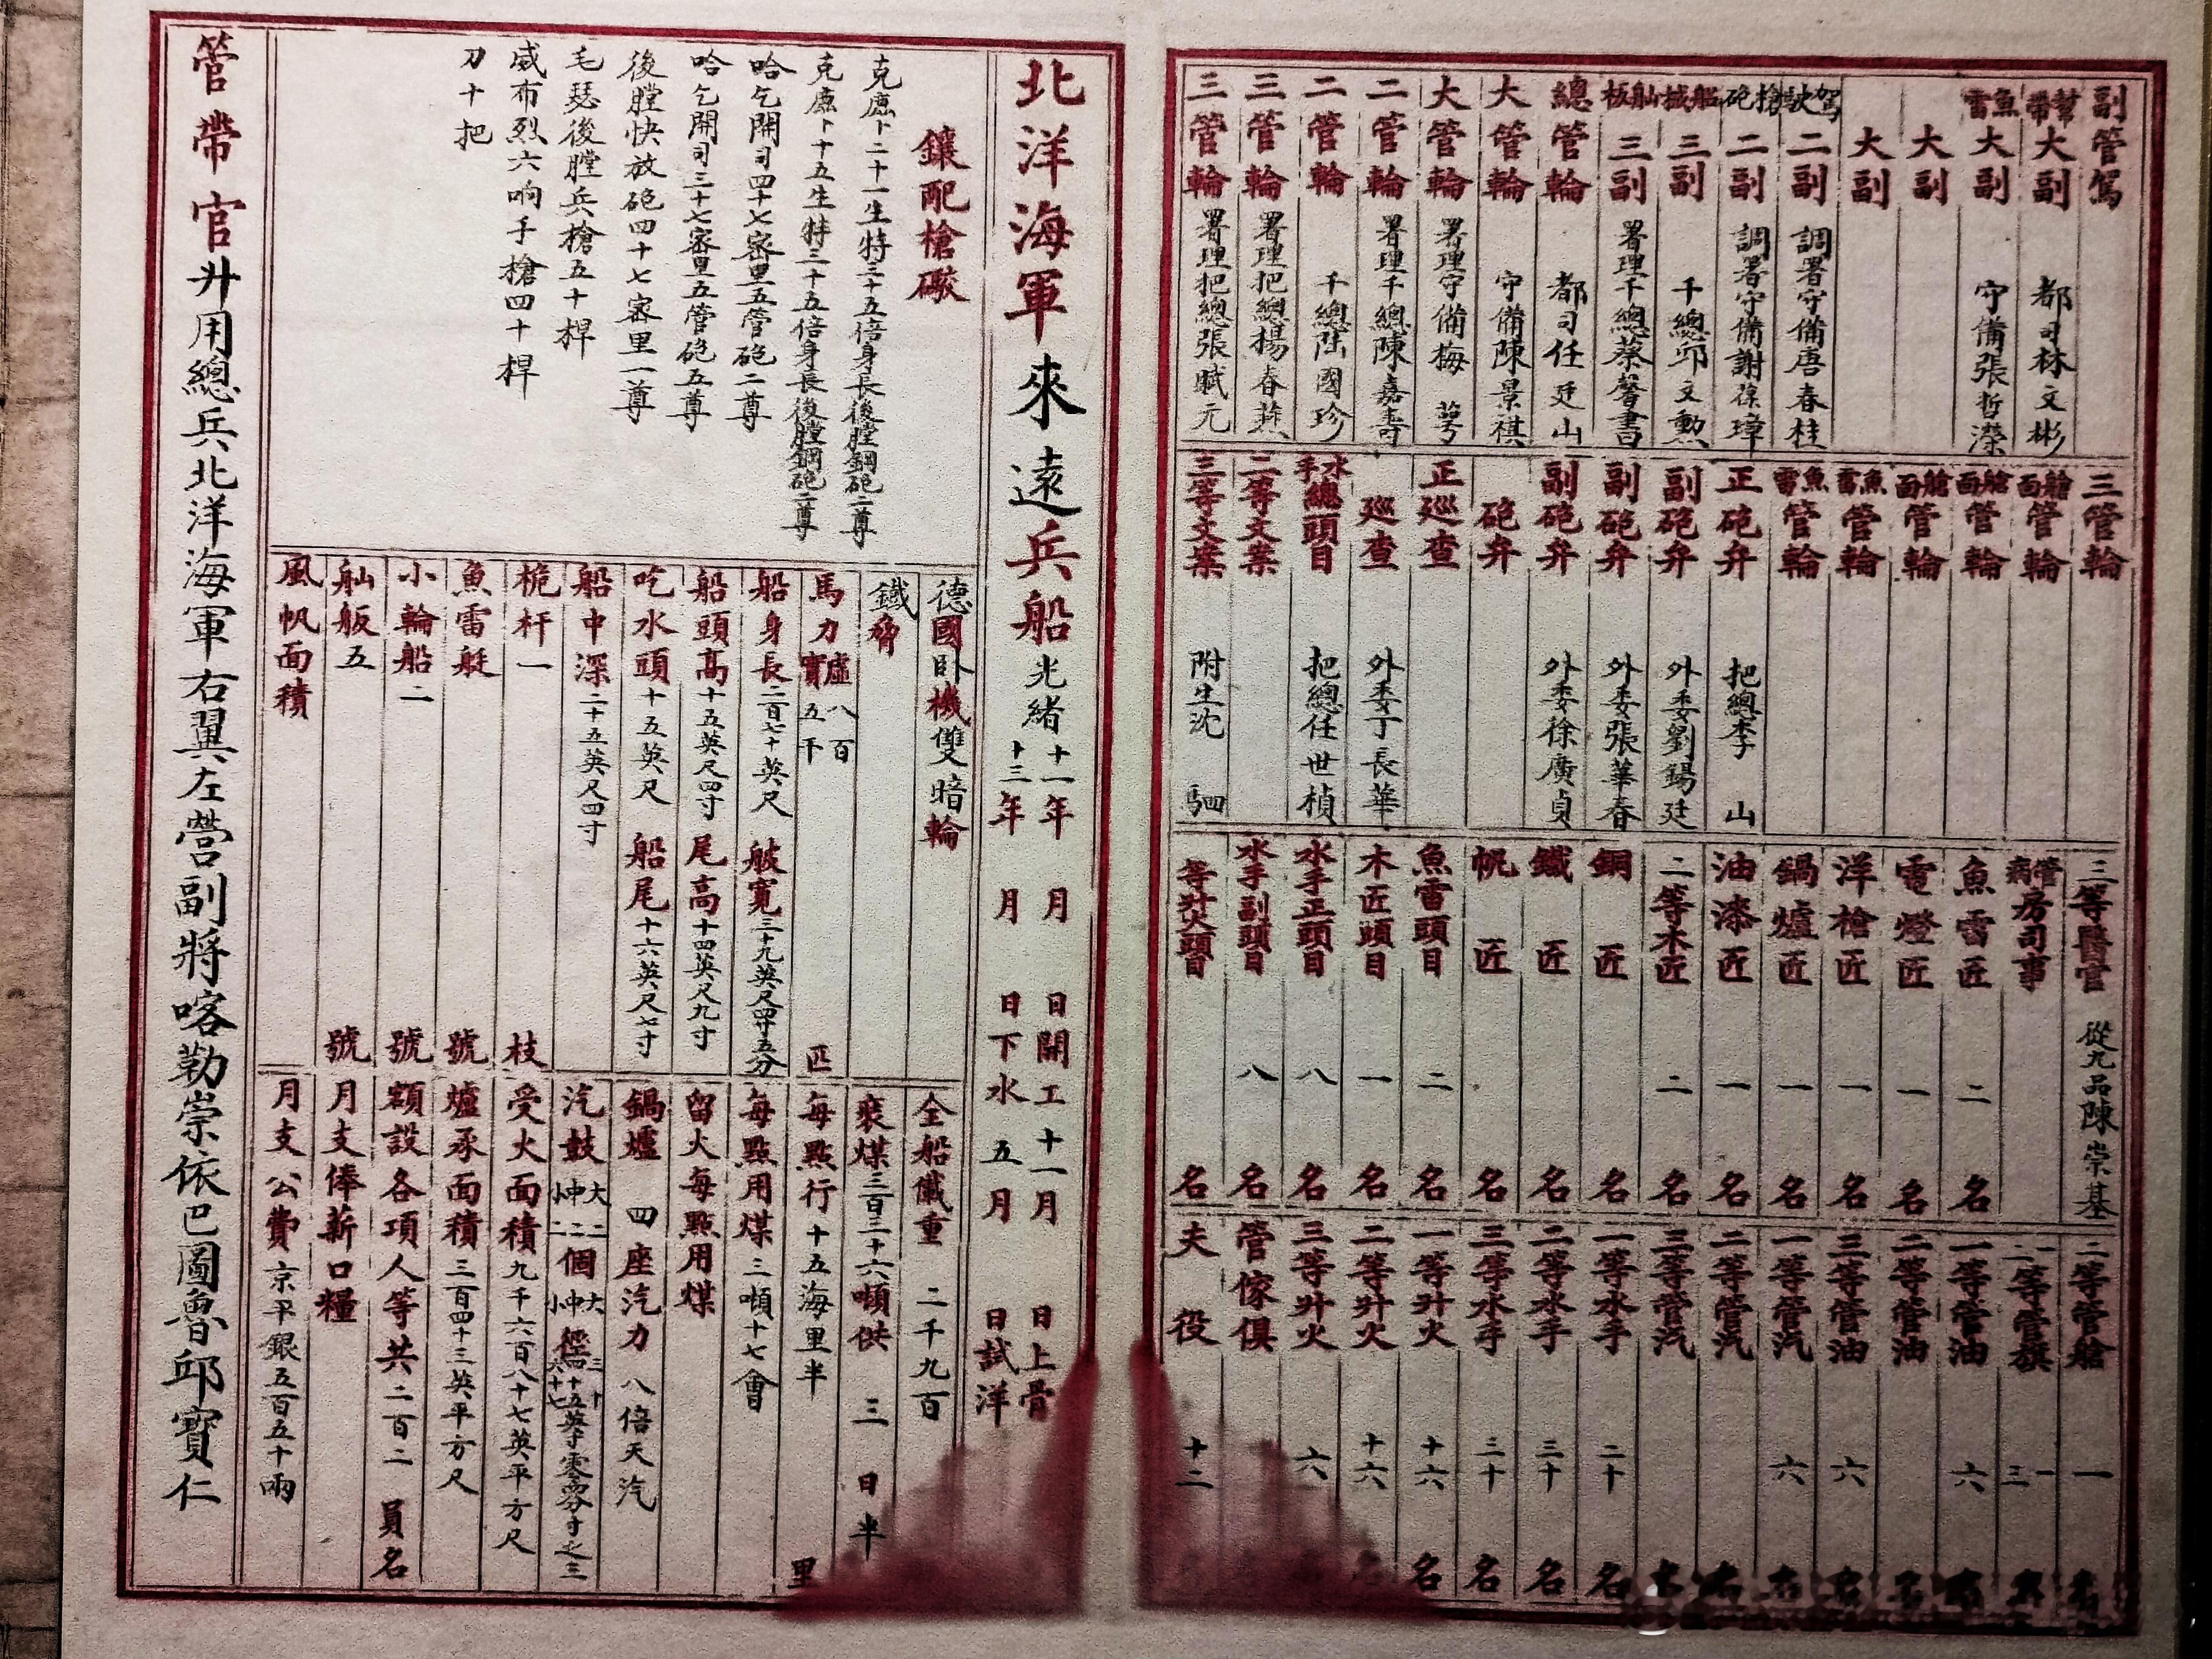 北洋海軍來遠兵船 光緒十一年 月 日開工 十一月 日上骨
十三年 月 日下水 五月 日試洋
鑲配槍礮
克鹿卜二十一生特三十五倍身長後膛鋼砲二尊
克鹿卜十五生特三十五倍身長後膛鋼砲二尊
哈乞開司四十七密里五管砲二尊
哈乞開司三十七密里五管砲五尊
後膛快放砲四十七密里一尊
毛瑟後膛兵槍五十桿
威布烈六响手槍四十桿
刀十把
德國卧機雙暗輪
鐵脅
馬力虛八百 實五千 匹
船身長二百七十英尺 艙寬三十九英尺四寸五分
船頭高十五英尺四寸 尾高十四英尺九寸
吃水頭十五英尺 船尾十六英尺七寸
船中深二十五英尺四寸
桅杆一 枝
魚雷艇 號
小輪船二 號
舢舨五 號
風帆面積
全船儎重 二千九百
裝煤三百三十六噸供 三 日半
每點行十五海里半 里
每點用煤三噸十七會
留火每點用煤
鍋爐 四 座汽力 八倍天汽
汽鼓 大二 中二 小 個 大 中 小 徑
受火面積九千六百八十七英平方尺
爐承面積三百四十三英平方尺
額設各項人等共二百二 員名
月支俸薪口糧
月支公費京平銀五百五十兩
管帶官升用總兵北洋海軍右翼左營副將喀勒崇依巴圖魯邱寶仁
副管駕
幫帶大副 都司林文彬
魚雷大副 守備張哲濚
大副
大副
駕駛二副 調署守備唐春桂
槍砲二副 調署守備謝葆璋
船械三副 千總邱文勳
舢板三副 署理千總蔡馨書
總管輪 都司任廷山
大管輪 守備陳景祺
大管輪 署理守備梅 萼
二管輪 署理千總陳嘉壽
二管輪 千總陸國珍
三管輪 署理把總楊春燕
三管輪 署理把總張斌元
三管輪
艙面管輪
艙面管輪
艙面管輪
魚雷管輪
魚雷管輪
正砲弁 把總李 山
副砲弁 外委劉錫廷
副砲弁 外委張華春
副砲弁 外委徐廣貞
砲弁
正巡查
巡查 外委丁長華
水手總頭目 把總任世楨
二等文案
三等文案 附生沈 駟
三等醫官 從九品陳崇基
管病房司事
魚雷匠 二 名
電燈匠 一 名
洋槍匠 一 名
鍋爐匠 一 名
油漆匠 一 名
二等木匠 二 名
銅匠 名
鐵匠 名
帆匠 名
魚雷頭目 二 名
木匠頭目 一 名
水手正頭目 八 名
水手副頭目 八 名
等升火頭目 名
二等管艙 一 名
一二等管旗 一三 名
一等管油 六 名
二等管油 名
三等管油 六 名
一等管汽 六 名
二等管汽 名
三等管汽 名
一等水手 二十 名
二等水手 三十 名
三等水手 三十 名
一等升火 十六 名
二等升火 十六 名
三等升火 六
管傢俱
夫役 十二